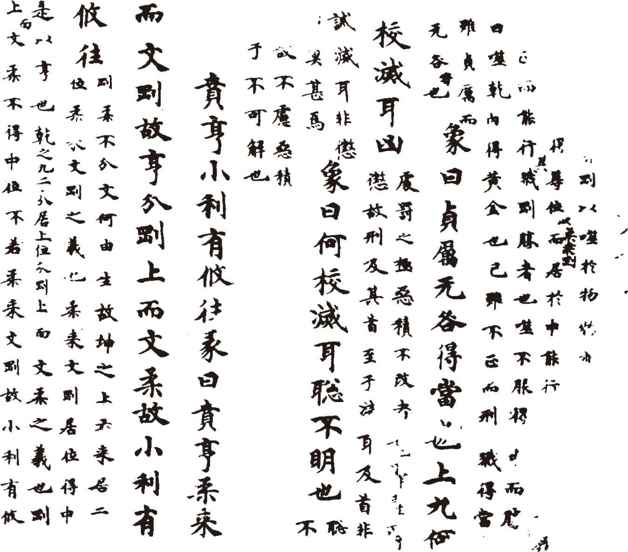 剛以噬於物
得尊位而居於中能行
正而能行戮剛勝者也噬不服得中而勝
曰噬乾肉得黃金也己雖不正而刑戮得當
雖貞厲而
无咎者也
象曰貞厲无咎得當也上九何
校滅耳凶
處罰之極惡積不改者
懲故刑及其首至于滅耳及首非
誡滅耳非懲
莫甚焉
象曰何校滅耳聡不明也
聡
不
故不慮惡積
于不可解也
賁亨小利有攸往彖曰賁亨柔來
而文剛故亨分剛上而文柔故小利有
攸往
剛柔不分文何由生故坤之上六來居二
位柔來文剛之義也柔來文剛居位得中
是以亨也乾之九二分居上位分剛上而文柔之義也剛
上而文柔不得中位不若柔來文剛故小利有攸